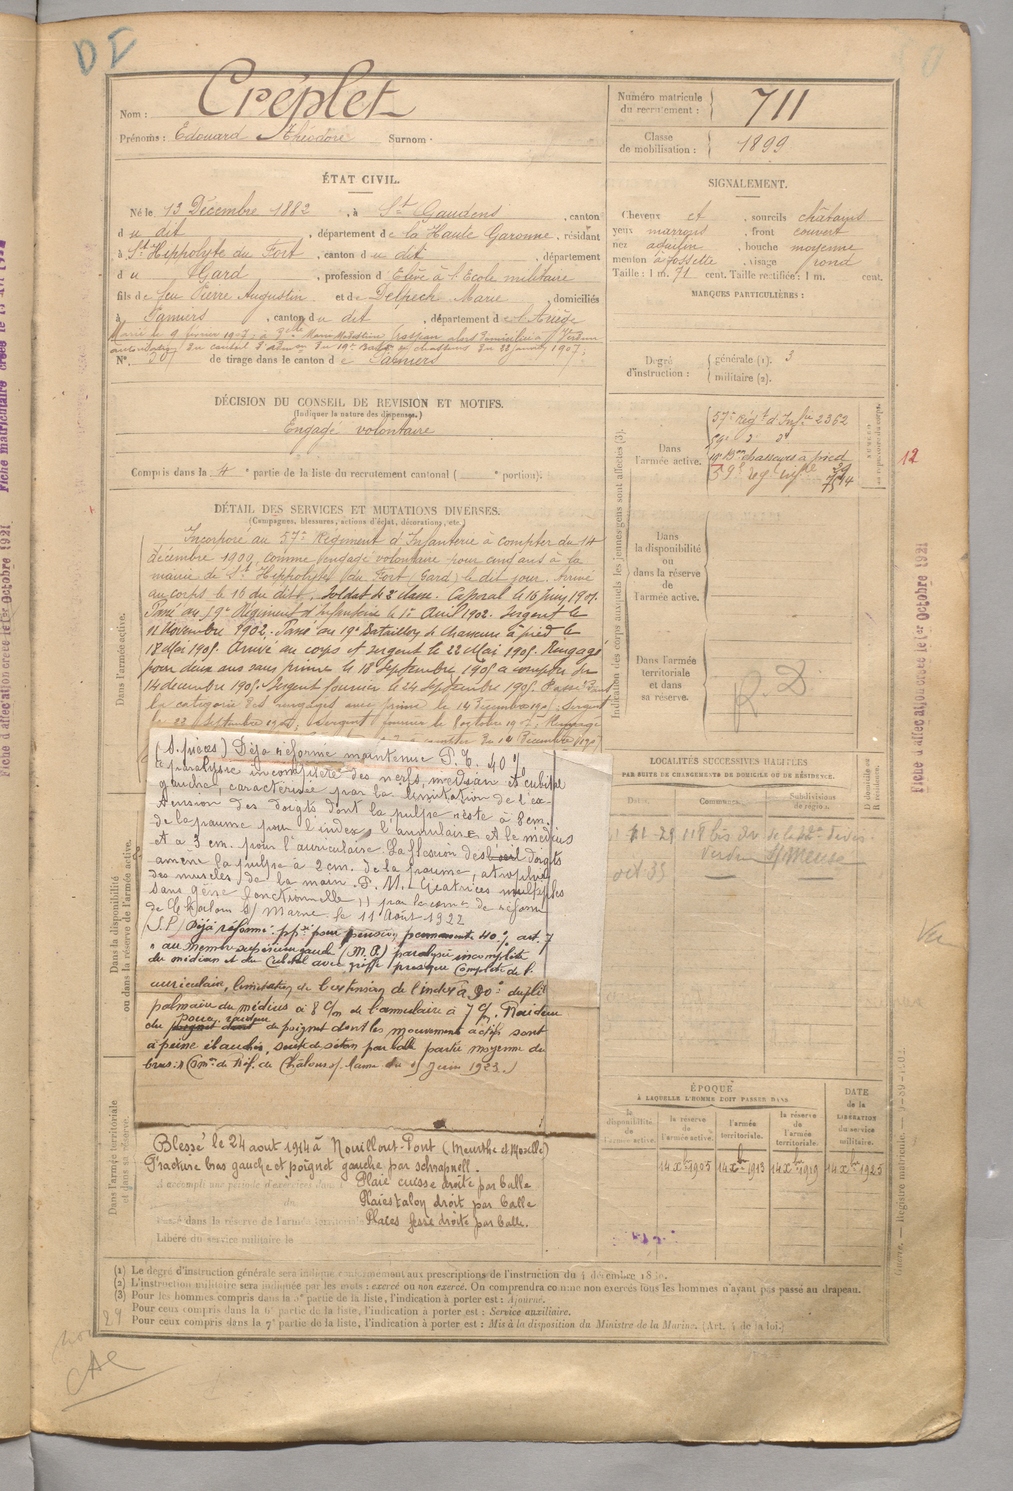 DI
Nom : Créplet
Prénoms : Edouard Théodore Surnom :
Numéro matricule du recrutement : 711
Classe de mobilisation : 1899
ÉTAT CIVIL.
Né le 13 Décembre 1882, à St Gaudens, canton
du dit, département de la Haute Garonne, résidant
à St Hippolyte du Fort, canton du dit, département
du Gard, profession d'Elève à l'Ecole militaire
fils de feu Pierre Augustin et de Delpech Marie, domiciliés
à Pamiers, canton du dit, département de l'Ariège
Marié le 9 février 1907, à
autorisation du conseil d'admon du 19e Baton de chasseurs du 28 janvier 1907.
N°. 207 de tirage dans le canton de Pamiers
SIGNALEMENT.
Cheveux et, sourcils châtains
yeux marrons, front couvert
nez aquilin, bouche moyenne
menton à fossette, visage rond
Taille : 1 m. 71 cent. Taille rectifiée : 1 m. cent.
MARQUES PARTICULIÈRES :
Degré d'instruction : générale (1). 3
militaire (2).
DÉCISION DU CONSEIL DE REVISION ET MOTIFS.
(Indiquer la nature des dispenses.)
Engagé volontaire
Compris dans la 4e partie de la liste du recrutement cantonal ( e portion).
DÉTAIL DES SERVICES ET MUTATIONS DIVERSES.
(Campagnes, blessures, actions d'éclat, décorations, etc.)
Dans l'armée active.
Incorporé au 57e Régiment d'Infanterie à compter du 14
décembre 1900, comme engagé volontaire pour cinq ans à la
mairie de St Hippolyte du Fort (Gard) le dit jour. Arrivé
au corps le 16 du dit, soldat de 2e classe. Caporal le 16 juin 1901.
Passé au Régiment d'Infanterie le 1er Avril 1902. Sergent le
11 Novembre 1902. Passé au 19e Bataillon de chasseurs à pied le
18 Mai 1905. Arrivé au corps et sergent le 22 Mai 1905. Rengagé
pour deux ans sans prime le 18 septembre 1905 à compter du
14 décembre 1905. Sergent fourrier le 24 septembre 1905. Passé dans
la catégorie des rengagés avec prime le 14 décembre 1905. Sergent
le 22 septembre sergent fourrier le 8 octobre 1907, Rengagé
à compter du 14 Décembre 1907
(S. pièces) Déjà réformé maintenue P. T. 40 %
"paralysie incomplète des nerfs, médian et cubital
gauche, caractérisée par la limitation de l'ex-
tension des doigts dont la pulpe reste à 8 cm.
de la paume pour l'index, l'annulaire et le médius
et à 3 cm. pour l'auriculaire. La flexion des doigts
amène la pulpe à 2 cm. de la paume, atrophie
des muscles de la main. P. M. Cicatrices multiples
sans gêne fonctionnelle" par la comon de réforme
de Châlons s/ Marne le 11 Août 1922
(S.P) Déjà réformé. ppon pour pension permanente 40 % art. 7
"au membre supérieur gauche (M.A) paralysie incomplète
du médian et du cubital avec griffe presque complète de l'
auriculaire, limitation de l'extension de l'index à 90° du pli
palmaire du médius à 8 c/m de l'annulaire à 7 c/m. Raideur
du pouce, raideur du poignet dont les mouvements actifs sont
à peine ébauchés, séton par balle partie moyenne du
bras." (Comon de réf. de Châlons s/ Marne du 15 Juin 1923.)
Blessé le 24 aout 1914 à Nouillon-Pont (Meurthe et Moselle)
Fracture bras gauche et poignet gauche par schrapnell.
Plaie cuisse droite par balle
Plaies talon droit par balle
Plaies fesse droite par balle.
A accompli une période d'exercices dans
Passé dans la réserve de l'armée territoriale
Libéré du service militaire le
Dans la disponibilité ou dans la réserve de l'armée active.
Dans l'armée territoriale et dans sa réserve.
Indication des corps auxquels les jeunes gens sont affectés (3).
Dans l'armée active.
57e Régt d'Infie 2362
19e Bon chasseurs à pied
12
Dans la disponibilité ou dans la réserve de l'armée active.
Dans l'armée territoriale et dans sa réserve.
R.D
LOCALITÉS SUCCESSIVES HABITÉES
PAR SUITE DE CHANGEMENTS DE DOMICILE OU DE RÉSIDENCE.
Dates. Communes. Subdivisions de région. D domicile ou R résidence.
118 bis Av de la 42e Division
Verdun s/Meuse
ÉPOQUE
À LAQUELLE L'HOMME DOIT PASSER DANS
la disponibilité de l'armée active. la réserve de l'armée active. l'armée territoriale. la réserve de l'armée territoriale.
DATE de la LIBÉRATION du service militaire.
14 Xbre 1905 14 Xbre 1913 14 Xbre 1919 14 Xbre 1925
(1) Le degré d'instruction générale sera indiqué conformément aux prescriptions de l'instruction du 4 décembre
(2) L'instruction militaire sera indiquée par les mots : exercé ou non exercé. On comprendra comme non exercés tous les hommes n'ayant pas passé au drapeau.
(3) Pour les hommes compris dans la 5e partie de la liste, l'indication à porter est : Ajourné.
Pour ceux compris dans la 6e partie de la liste, l'indication à porter est : Service auxiliaire.
Pour ceux compris dans la 7e partie de la liste, l'indication à porter est : Mis à la disposition du Ministre de la Marine. (Art. 4 de la loi.)
Fiche d'affectation créée le 1er Octobre 1921
Fiche d'affectation créée le 1er Octobre 1921
Fiche matriculaire créée le
Vu